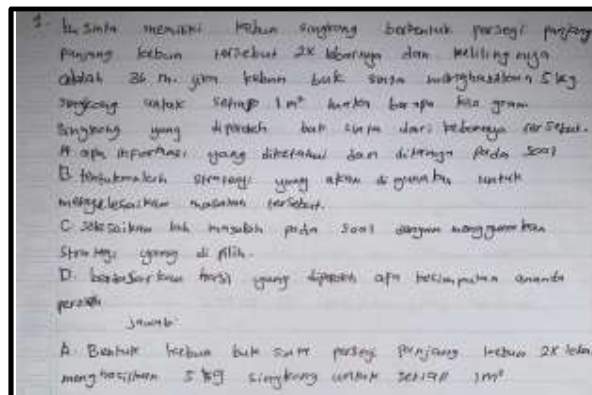 1. b. Sinta memiliki kebun singkong berbentuk persegi panjang
panjang kebun tersebut 2x lebarnya dan keliling nya
adalah 36 m. jika kebun buk sinta menghasilkan 5 kg
singkong untuk setiap 1 m² maka berapa kilo gram
singkong yang diperoleh buk sinta dari kebunnya tersebut.
A apa informasi yang diketahui dan ditanya pada soal
B. tentukanlah strategi yang akan di gunakan untuk
menyelesaikan masalah tersebut.
C selesaikan lah masalah pada soal dengan menggunakan
strategi yang di pilih.
D. berdasarkan hasil yang diperoleh apa kesimpulan ananda
jawab
A. Bentuk kebun buk sinta persegi panjang kebun 2x
menghasilkan 5 kg singkong untuk setiap 1m²